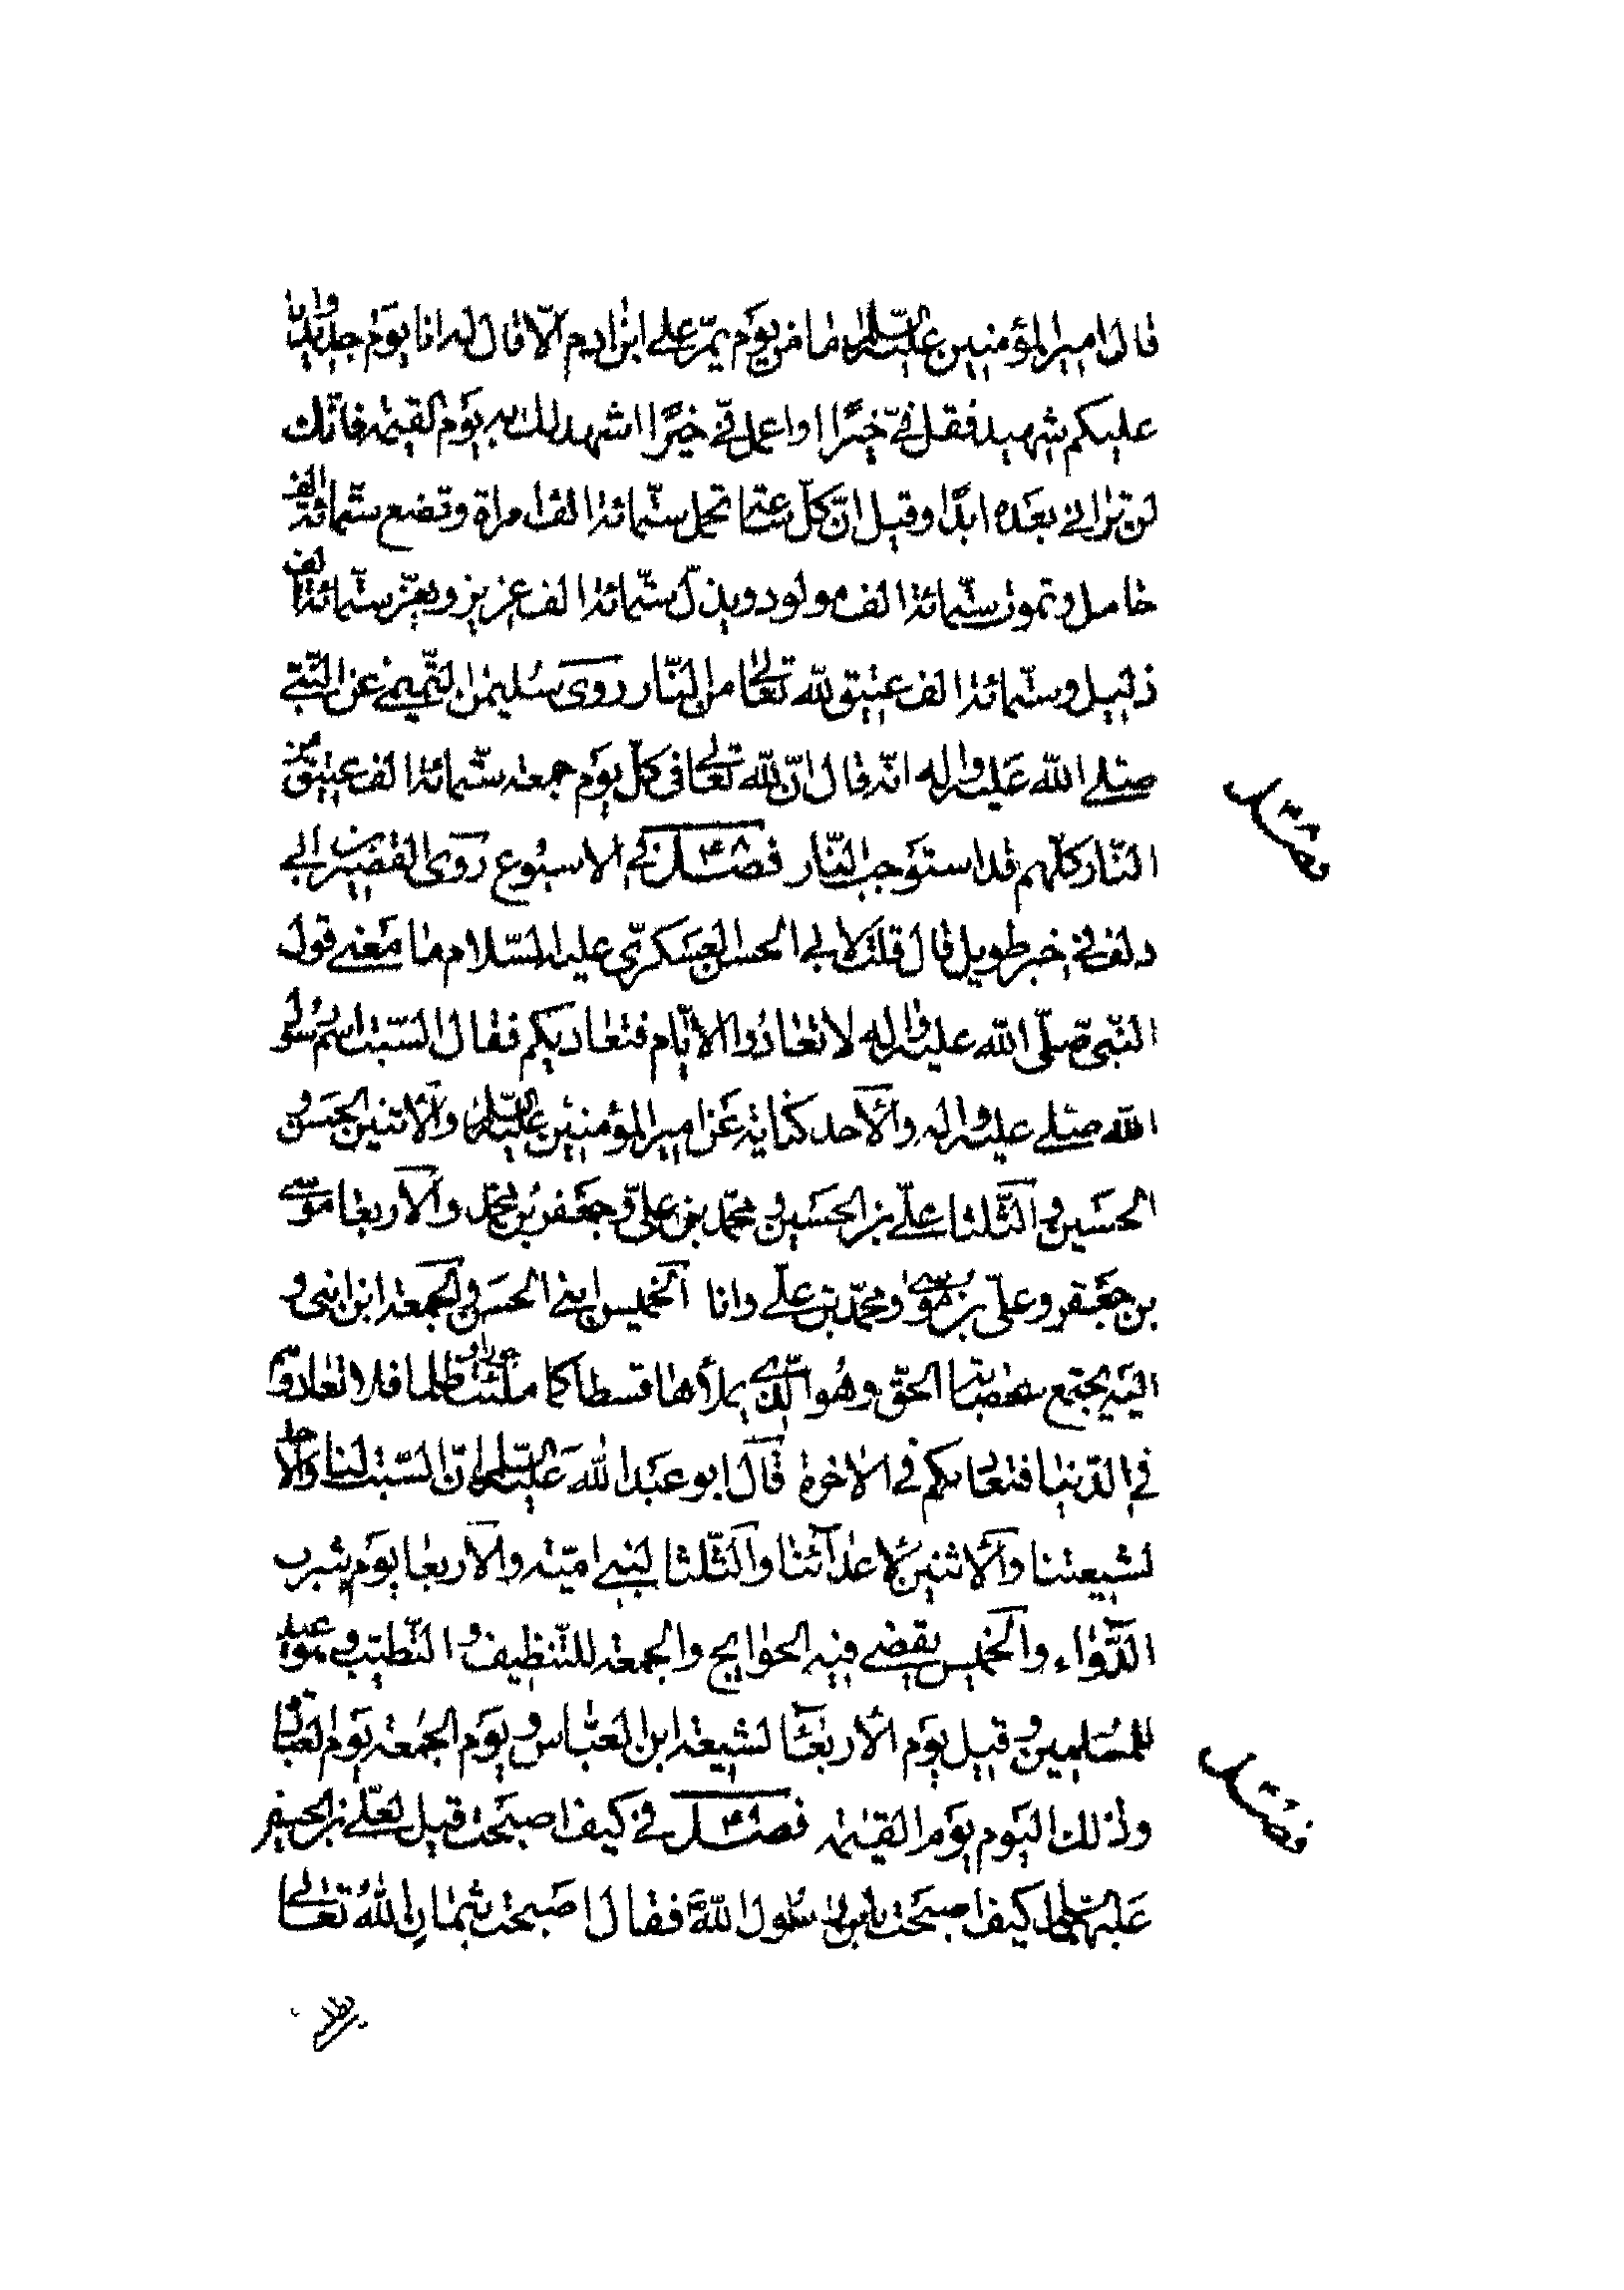 قال امير المؤمنين عليه السلام ما من يوم يمرّ على ابن ادم الّا قال له انا يوم جديد وانا
عليكم شهيد فقل فىّ خيرًا واعمل فىّ خيرًا اشهد لك به يوم القيمة فانّك
لن ترانى بعده ابدًا وقيل انّ كلّ ساعة تحمل ستّمائة الف امراة وتضع ستّمائة الف
حامل وتموت ستّمائة الف مولود ويذلّ ستّمائة الف عزيز ويعزّ ستّمائة الف
ذليل وستّمائة الف عتيق لله تعالى من النّار روى سليمن التّميمى عن النّبى
صلى الله عليه واله انّه قال انّ لله تعالى فى كلّ يوم جمعة ستّمائة الف عتيق من
النّار كلّهم قد استوجب النّار فصل فى الاسبوع روى القصير بن ابى
دلف فى خبر طويل قال قلت لابى الحسن العسكرىّ عليه السّلام ما معنى قول
النّبى صلّى الله عليه واله لا تعادوا الايّام فتعاديكم فقال السّبت اسم رسول
الله صلى عليه واله والاحد كناية عن امير المؤمنين عليه السلام والاثنين الحسن و
الحسين والثّلثا علىّ بن الحسين ومحمد بن علىّ وجعفر بن محمّد والاربعا موسى
بن جعفر وعلىّ بن موسى ومحمّد بن على وانا الخميس ابنى الحسن والجمعة ابن ابنى و
اليه يجتمع عصابة الحق وهو الّذى يملأها قسطا كما ملئت جورا وظلما فلا تعادوهم
فى الدّنيا فتعاديكم فى الاخرة قال ابو عبد الله عليه السلام انّ السّبت لنا والاحد
لشيعتنا والاثنين لاعدآئنا والثّلثا لبنى اميّة والاربعا يوم يشرب
الدّواء والخميس يقضى فيه الحوايج والجمعة للتّنظيف و التّطيّب وهو عيد
للمسلمين وقيل يوم الاربعآ لشيعة ابن العبّاس ويوم الجمعة يوم لعبادة
ولذلك اليوم يوم القيمة فصل فى كيف اصبحت قيل لعلى بن الحسين
عليهما السلام كيف اصبحت يا بن رسول الله فقال اصبحت بثمان الله تعالى
فصل
فصل